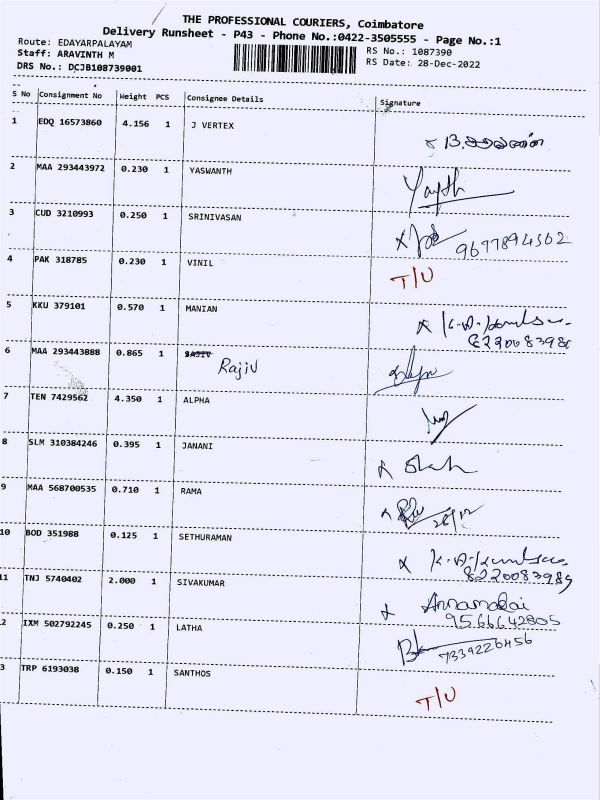 THE PROFESSIONAL COURIERS, Coimbatore
Delivery Runsheet - P43 - Phone No.:0422-3505555 - Page No.:1
Route: EDAYARPALAYAM
RS No.: 1087390
Staff: ARAVINTH M
RS Date: 28-Dec-2022
DRS No.: DCJB108739001
S No Consignment No Weight PCS Consignee Details Signature
1 EDQ 16573860 4.156 1 J VERTEX
2 MAA 293443972 0.230 1 YASWANTH
3 CUD 3210993 0.250 1 SRINIVASAN
9677894562
4 PAK 318785 0.230 1 VINIL T/U
5 KKU 379101 0.570 1 MANIAN
6 MAA 293443888 0.865 1 SAJIV Rajiv
7 TEN 7429562 4.350 1 ALPHA
8 SLM 310384246 0.395 1 JANANI
9 MAA 568700535 0.710 1 RAMA
28/12
10 BOD 351988 0.125 1 SETHURAMAN
8220083985
11 TNJ 5740402 2.000 1 SIVAKUMAR Annamalai
9566642805
2 IXM 502792245 0.250 1 LATHA
7339226456
3 TRP 6193038 0.150 1 SANTHOS T/U